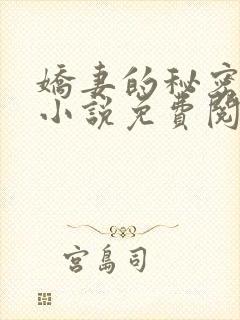 嬌妻的秘密
小說免費閱
宮島司